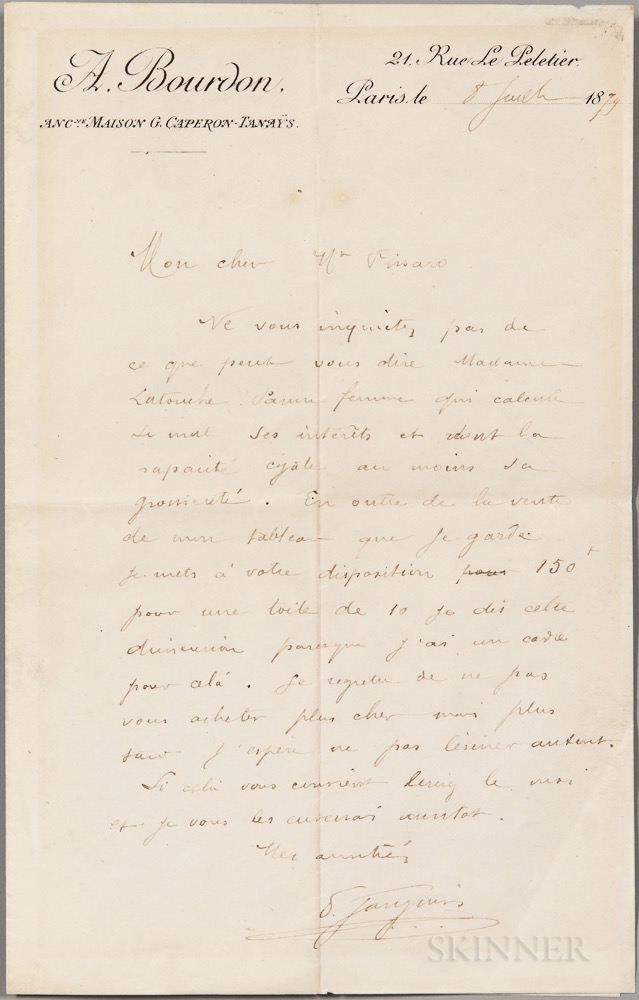 A. Bourdon.
ANC.NE MAISON G. CAPERON-TANAŸS.
21. Rue Le Peletier.
Paris, le 8 Juillet 1879
Mon cher Mr Pissaro
Ne vous inquietez pas de
ce que peut vous dire Madame
Latouche. Pauvre femme qui calcule
si mal ses intérêts et dont la
rapacité égale au moins sa
grossiereté. En outre de la vente
de mon tableau que je garde
je mets à votre disposition pour 150 f
pour une toile de 10 je dis cette
dimension parceque j'ai un cadre
pour celà. Je regrette de ne pas
vous acheter plus cher mais plus
tard j'espere ne pas lésiner autant.
Si celà vous convient le moi
et je vous les enverrai aussitot.
Mes amitiés
SKINNER